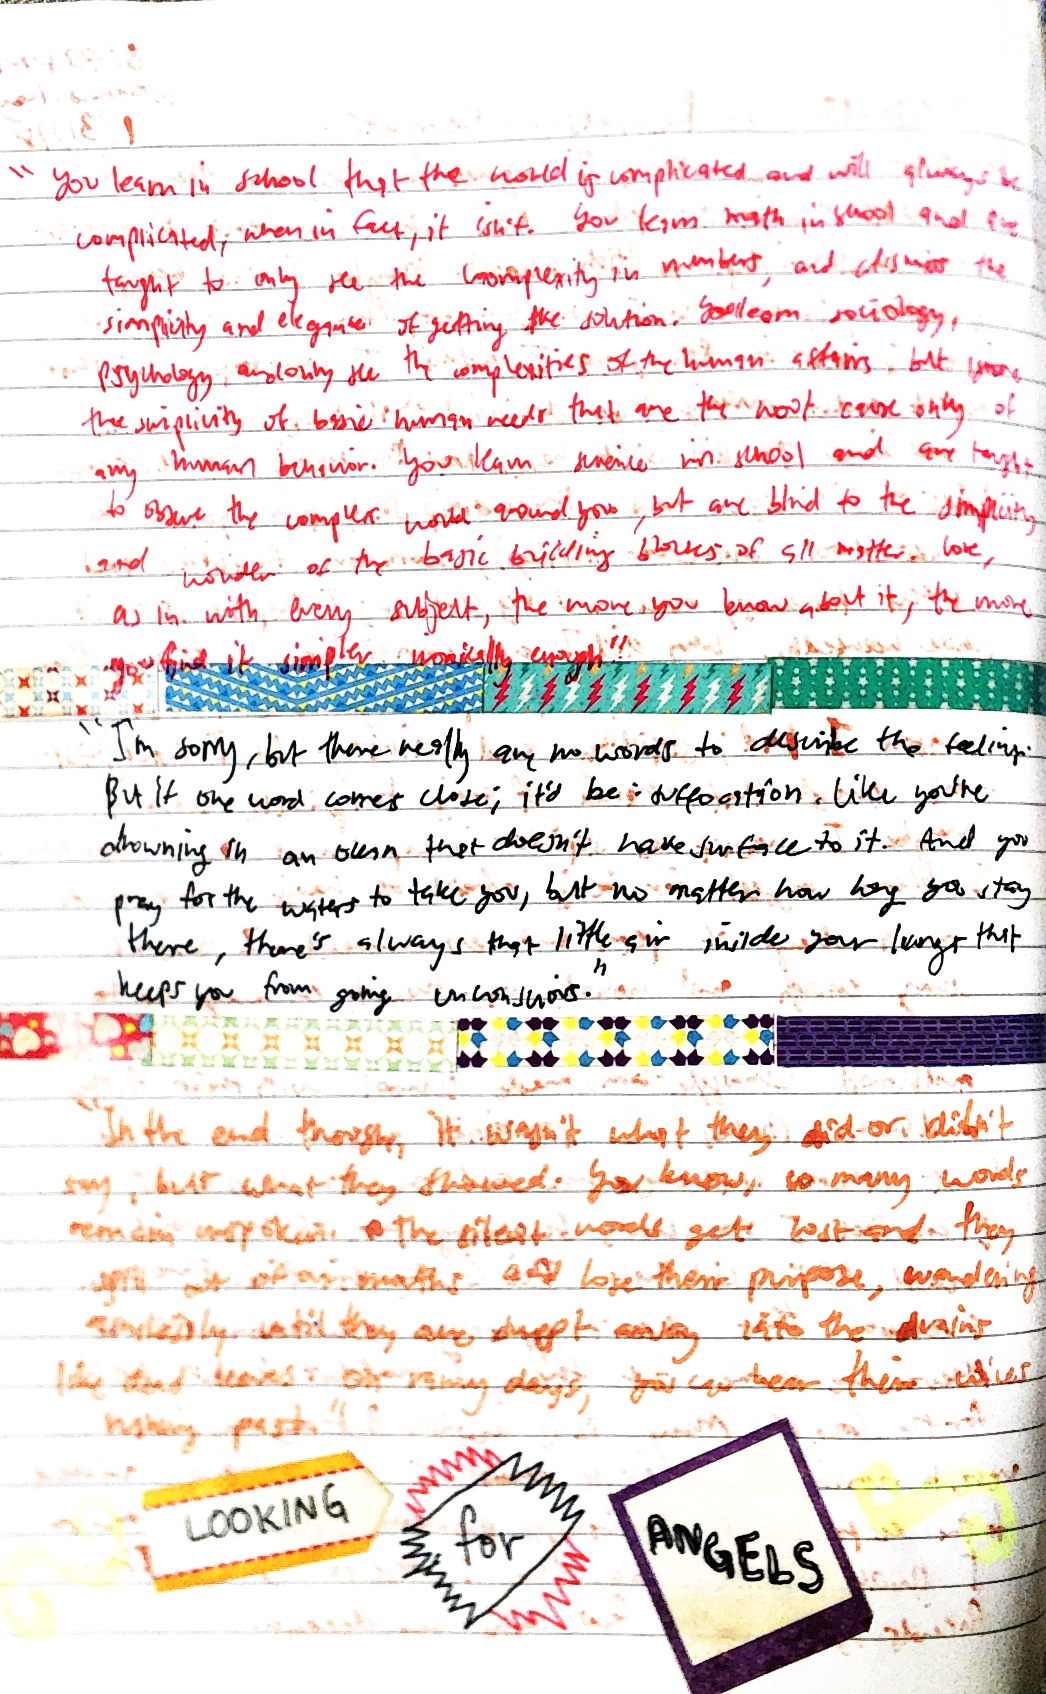 "You learn in school that the world is complicated and will always be
complicated, when in fact, it isn't. You learn math in school and are
taught to only see the complexity in numbers, and dismiss the
simplicity and elegance of getting the solution. You learn sociology,
psychology, and only see the complexities of the human affairs, but ignore
the simplicity of basic human needs that are the root cause only of
any human behavior. You learn science in school and are taught
to observe the complex world around you, but are blind to the simplicity
and wonder of the basic building blocks of all matter. Love,
as in with every subject, the more you know about it, the more
you find it simpler ironically enough"
"I'm sorry, but there really are no words to describe the feeling.
But if one word comes close; it'd be: suffocation. Like you're
drowning in an ocean that doesn't have surface to it. And you
pray for the waters to take you, but no matter how long you stay
there, there's always that little air inside your lungs that
keeps you from going unconscious."
"In the end though, it wasn't what they did or didn't
say, but what they showed. You know, so many words
remain unspoken. The silent words get lost and they
spill out of our mouths and lose their purpose, wandering
until they are swept away into the drains
like dead leaves. On rainy days, you can hear their voices
rushing past."
LOOKING
for
ANGELS